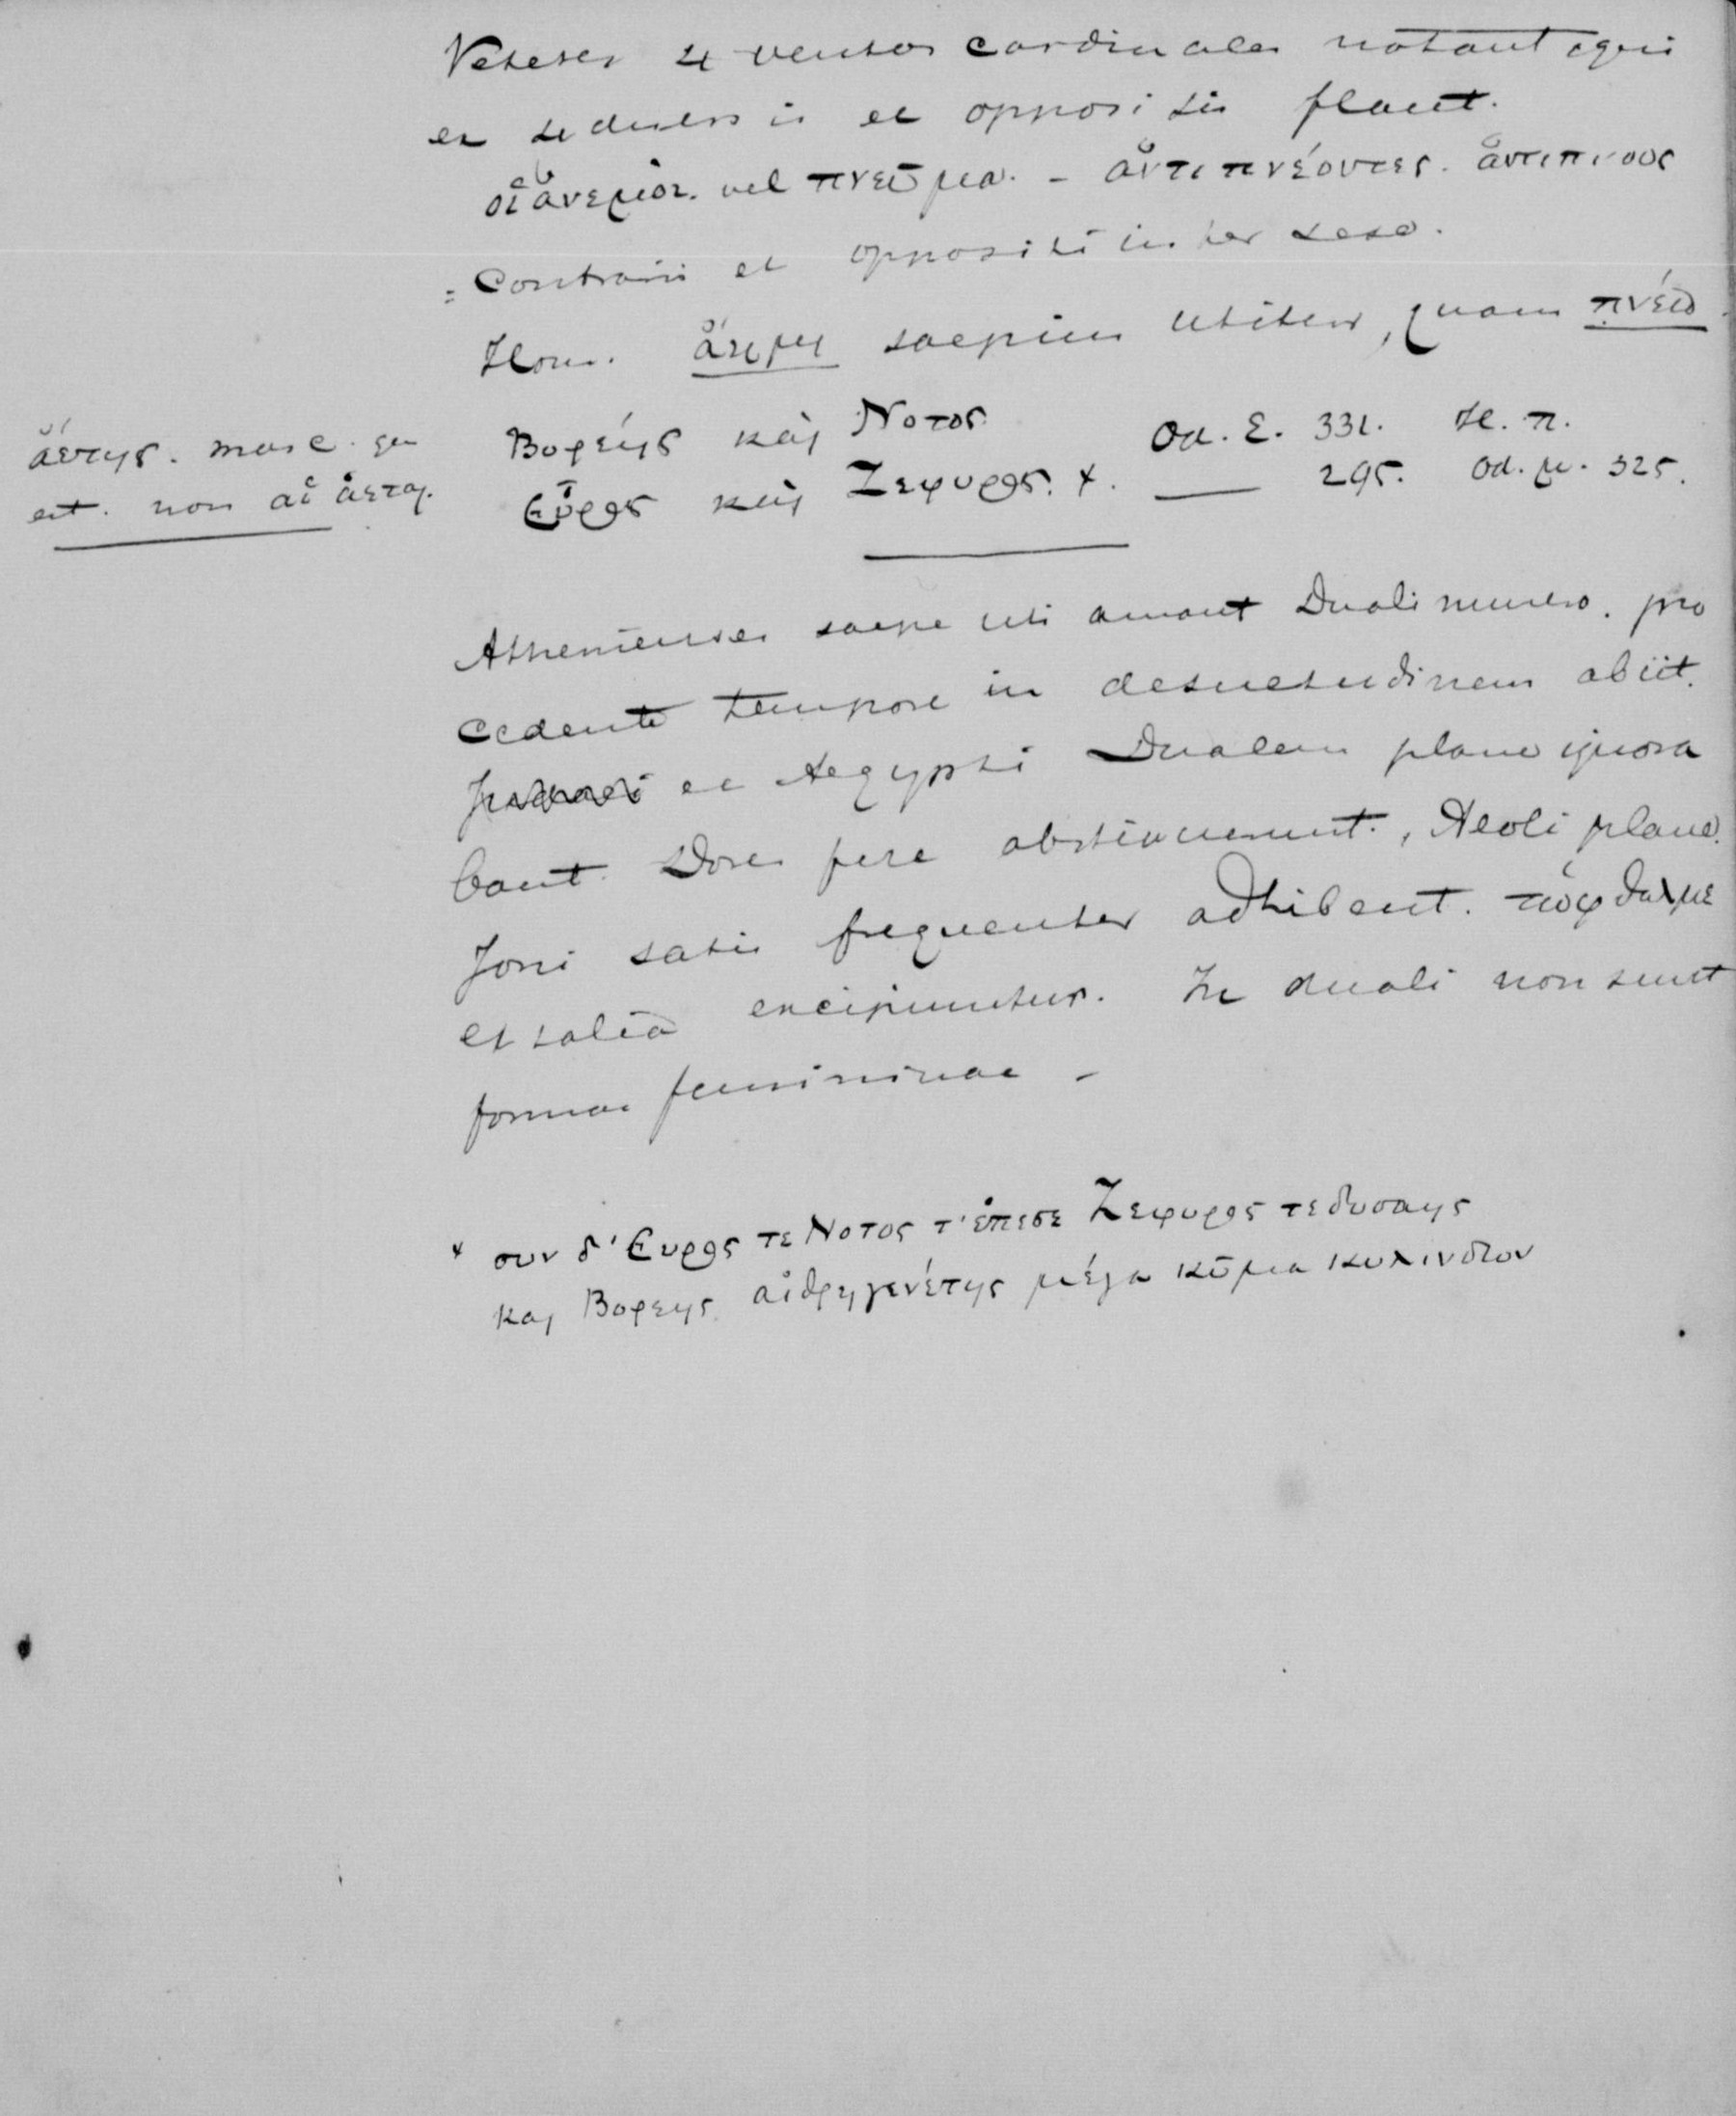 Veteres 4 ventos cardinales notant qui
ex diversis et oppositis flant.
οἱ ἄνεμοι. vel πνεῦμα. - ἀντιπνέοντες. ἀντιπνους
= Contrarii et oppositi inter sese.
Hom. ἄημι saepius utitur, quam πνέω.
ἀέτης. masc. gen
est. non αἱ ἀεται.
Βορέης και Νοτος Od. ε. 331. Il. π.
Εὖρος και Ζεφυρος. x. — 295. Od. μ. 325.
Athenienses saepe uti amant Duali numero. pro
cedente tempore in desuetudinem abiit.
et Aegypti Dualem plane ignora
bant. Dores fere abstinuerunt., Aeoli plane.
Joni satis frequenter adhibent. τώφθαλμε
et talia excipiuntur. In duali non sunt
formae femininae -
x συν δ' Ευρος τε Νοτος τ' ἐπεσε Ζεφυρος τε δυσαης
και Βορεης αἰθρηγενέτης μέγα κῦμα κυλινδων